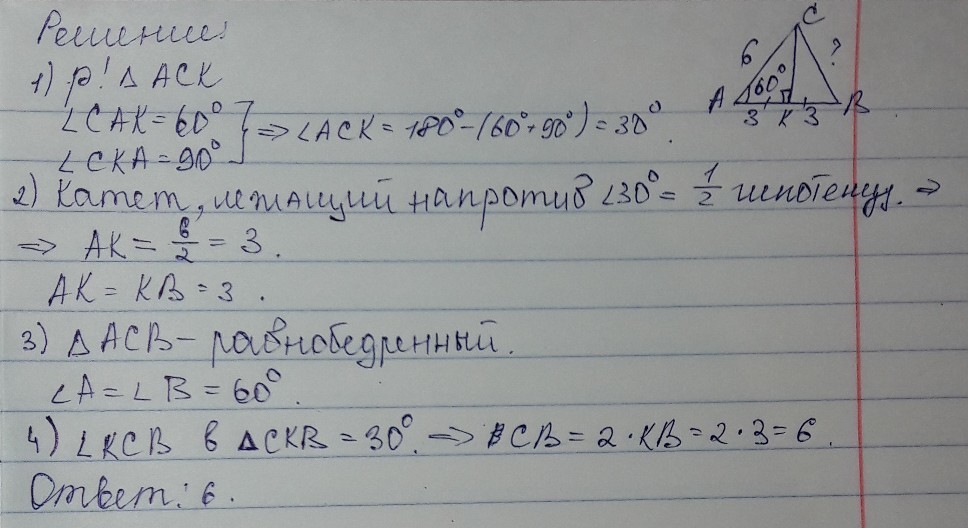 Решение:
1) р! △ ACK
∠CAK = 60°
∠CKA = 90° ] ⇒ ∠ACK = 180° - (60° + 90°) = 30°.
2) Катет, лежащий напротив ∠30° = 1/2 гипотенуз. ⇒
⇒ AK = 6/2 = 3.
AK = KB = 3.
3) △ ACB - равнобедренный.
∠A = ∠B = 60°.
4) ∠KCB в △CKB = 30°. ⇒ CB = 2·KB = 2·3 = 6.
Ответ: 6.
C
6 ?
60°
A 3 K 3 B